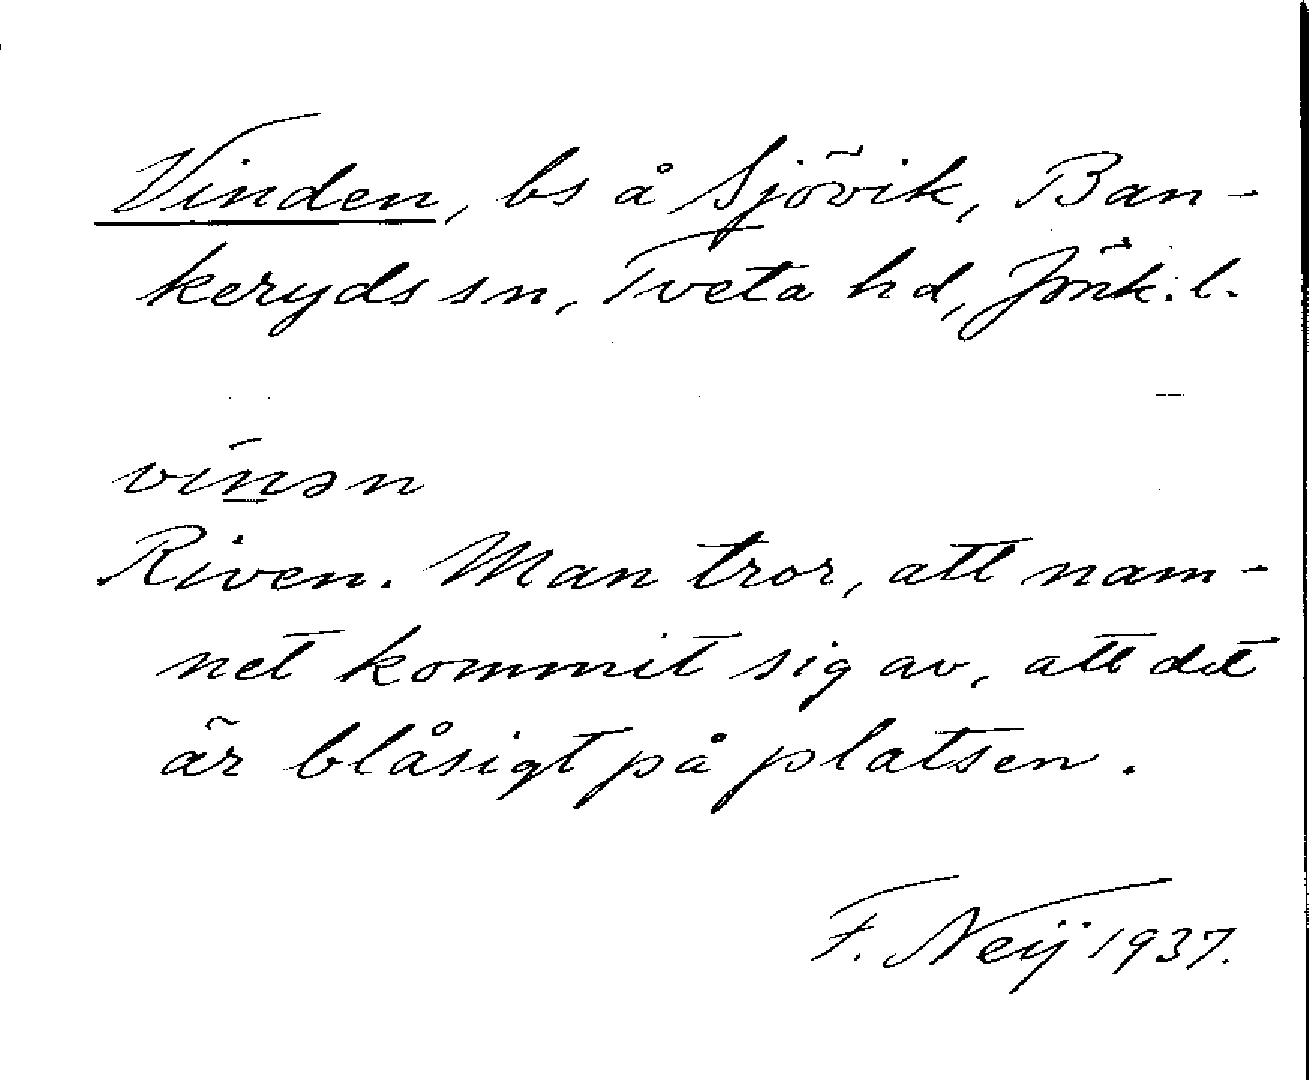 Vinden, bs å Sjövik, Ban-
keryds sn, Tveta hd, Jönk. l.
vinən
Riven. Man tror, att nam-
net kommit sig av, att det
är blåsigt på platsen.
F. Neij 1937.